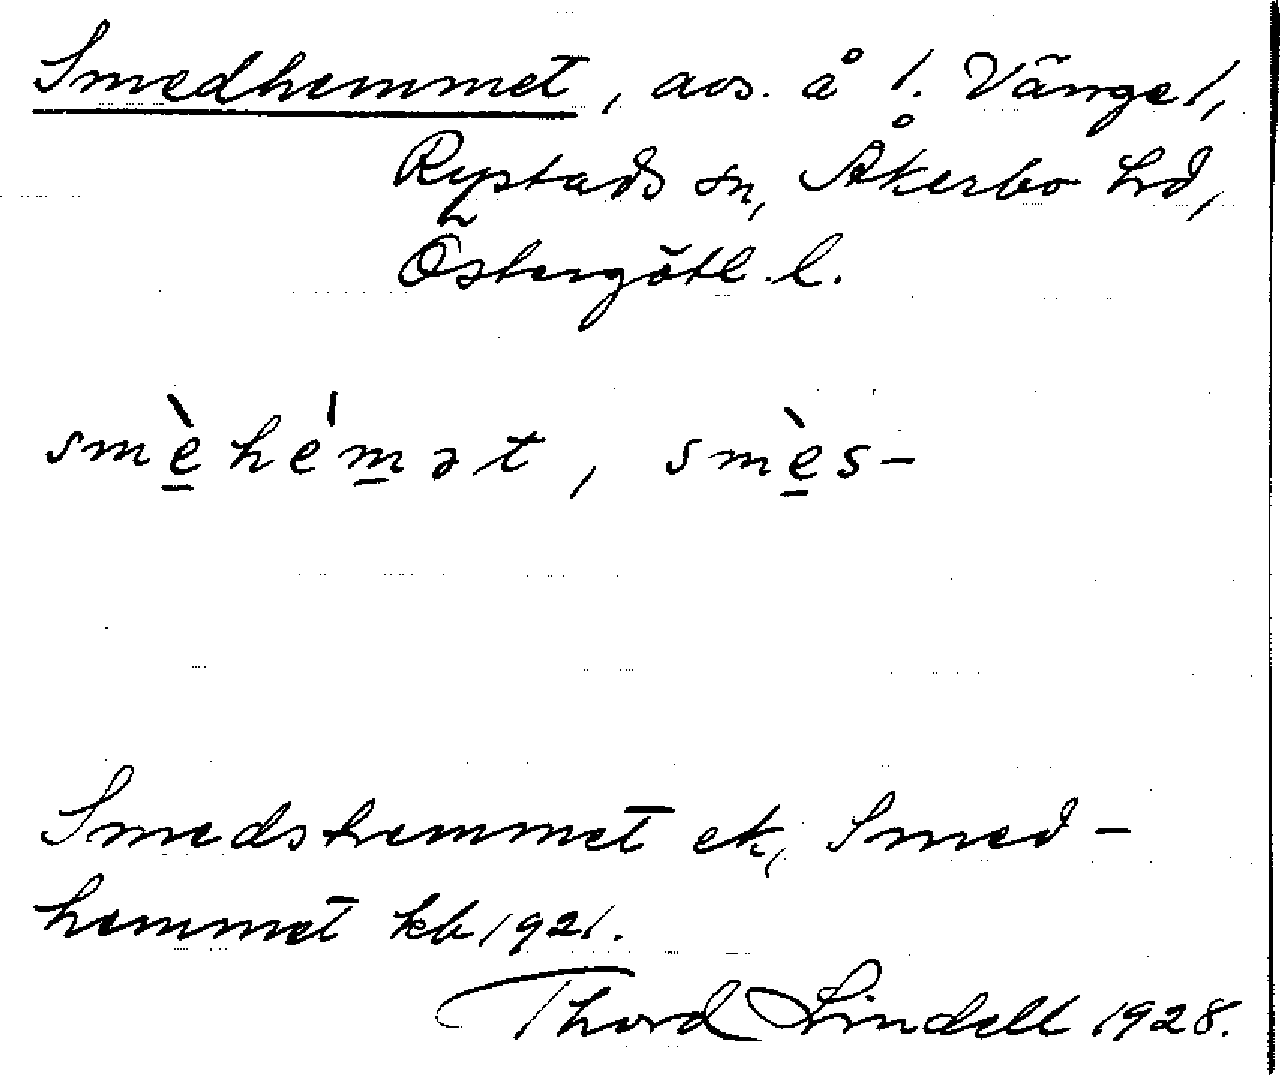 Smedhemmet, avs. å 1. Vänge 1,
Rystads sn, Åkerbo hd,
Östergötl. l.
smèhémət, smès-
Smedshemmet ek, Smed-
hemmet kb 1921.
Thord Lindell 1928.